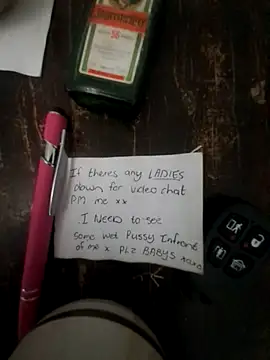 Jägermeister
56
If theres any LADIES
down for video chat
PM me xx
I Need to see
some wet Pussy Infront
of me x Plz BABYS